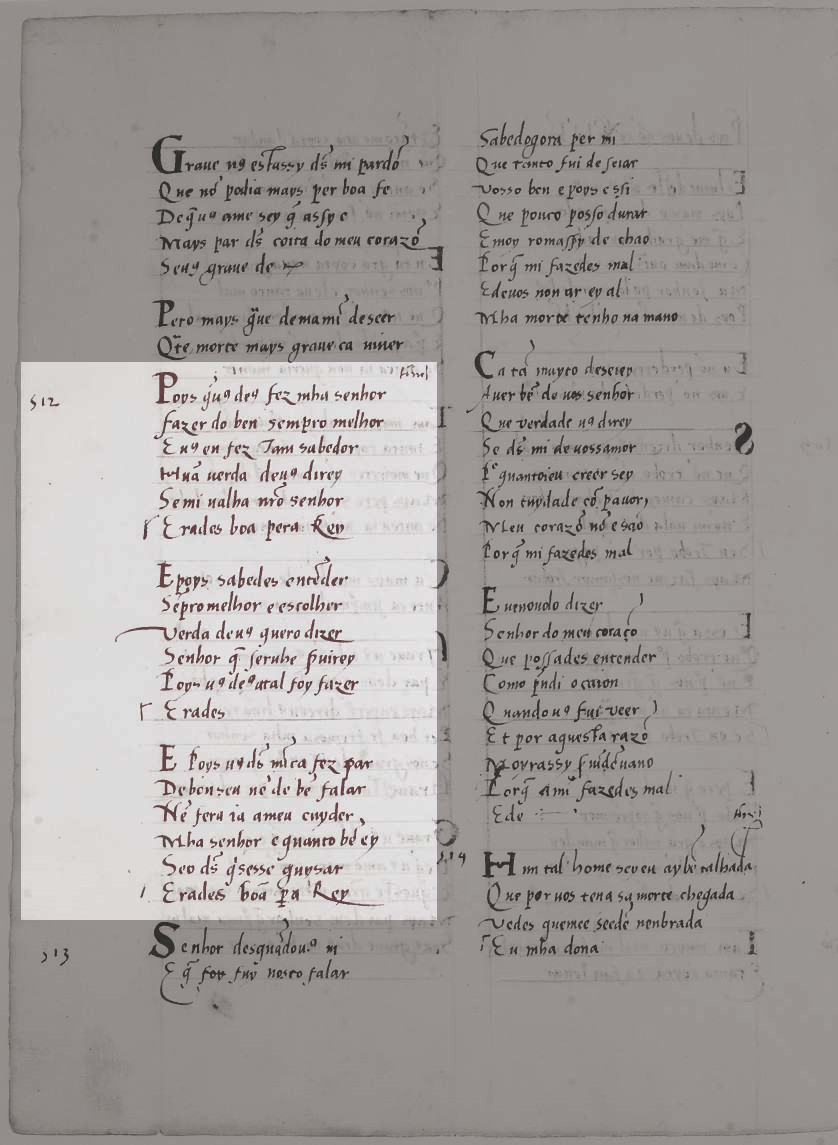 Graue ụ9 esta assy ds̃ mi pardõ
Que nõ podia mays per boa fe
De q̃ uꝯ ame sey q̃ assy e
Mays par ds̃ coita do meu corazõ
Seuꝯ graue de
Pero mays g̃ue de mamĩ de seer
Q̃te morte mays graue ca uiuer
512
Poys q̃ uꝯ deꝯ fez mha senhor
fazer do ben sempro melhor
E uꝯ en fez tam sabedor
Hunã uerda deuꝯ direy
Se mi ualha nr̃o senhor
Erades boa pera Rey
E poys sabedes entẽder
Sẽpro melhor e escolher
Verda deuꝯ quero dizer
Senhor q̃ seruhe s̃uirey
Poys uꝯ deꝯ atal foy fazer
Erades
E Poys uꝯ ds̃ nũca fez par
De bon seu nẽ de bẽ falar
Nẽ fera ia a meu cuyder
Mha senhor e quanto bẽ ey
Seo ds̃ q̃sesse guysar
Erades boã p̃a Rey
513
Senhor desquãdouꝯ ui
E q̃ foy fuy uosco falar
Sabed ogora per mi
Que tanto fui deseiar
Vosso ben e poys essi
Que pouco posso durar
E moyromassy de chao
Porq̃ mi fazedes mal
E de uos non ar ey al
Mha morte tenho na mano
Ca tã muyto deseiey
Auer bẽ de uos senhor
Que uerdade uꝯ direy
Se ds̃ mi de uossamor
Non cuydade cõ pauor
Meu corazõ nõ e sao
Porq̃ mi fazedes mal
E uenouolo dizer
Senhor do meu coraçõ
Que possades entender
Como p̃ndi o caion
Quando uꝯ fui ueer
Et por aquesta razõ
Moyrassy s̃uĩdẽuano
Porq̃ ami fazedes mal
Ede
514
Hun tal home sey eu ay bẽ talhada
Que por uos ten a sa morte chegada
Vedes quem e e seedẽ nenbrada
Eu mha dona